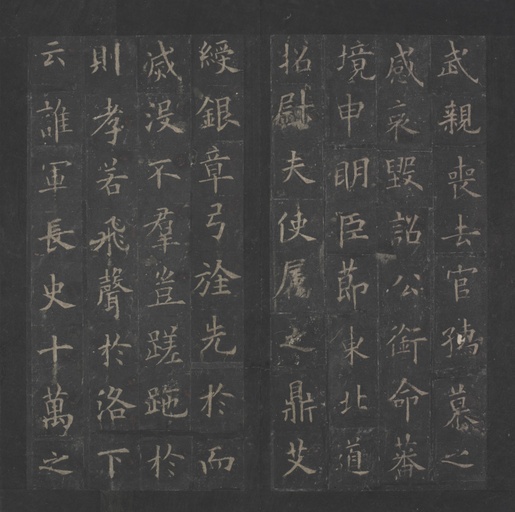 武親喪去官孺慕之
感哀毀詔公銜命蕃
境申明臣節東北道
招尉夫使属之鼎艾
綬銀章弓旌先於而
滅没不羣豈蹉跎於
則孝若飛聲於洛下
云誰軍長史十萬之